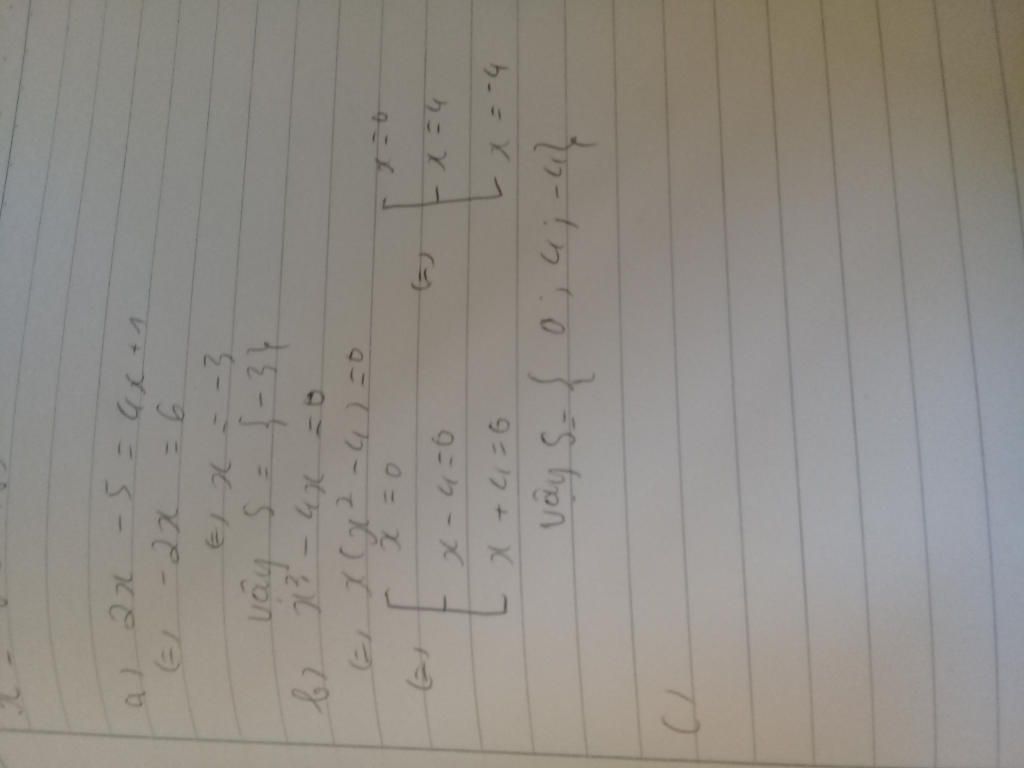 a) 2x - 5 = 4x + 1
(=) -2x = 6
(=) x = -3
vậy S = { -3 }
b) x³ - 4x = 0
(=) x(x² - 4) = 0
(=) [ x = 0 (=) [ x = 0
x - 4 = 0 x = 4
x + 4 = 0 x = -4
vậy S = { 0; 4; -4 }
c)